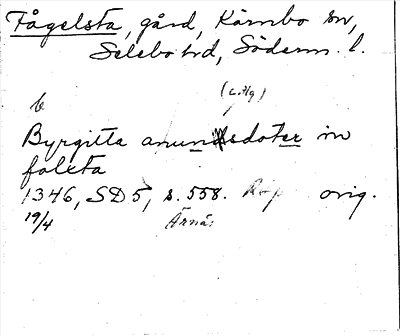 Fågelsta, gård, Kärnbo sn,
Selebo hd, Söderm. l.
b
Byrgitta amundsdoter in
folxta
1346, SD 5, s. 558. orig.
19/4 Ärnäs